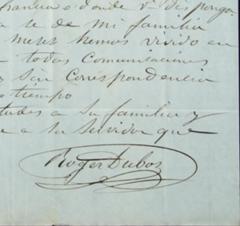 donde V
te de mi familia
meses hemos vivido en
todas comunicaciones
y seu correspondencia
tiempo
a su familia y
e a su servidor que
Roger Dubos